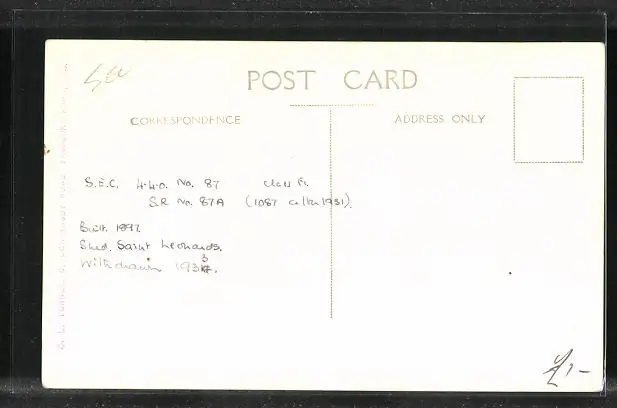 SEC
POST CARD
CORRESPONDENCE
ADDRESS ONLY
S.E.C. 4.4.0. No. 87 class F.
S.R. No. 87A (1087 after 1931).
Built. 1897.
Shed. Saint Leonards.
Withdrawn 193
£1-